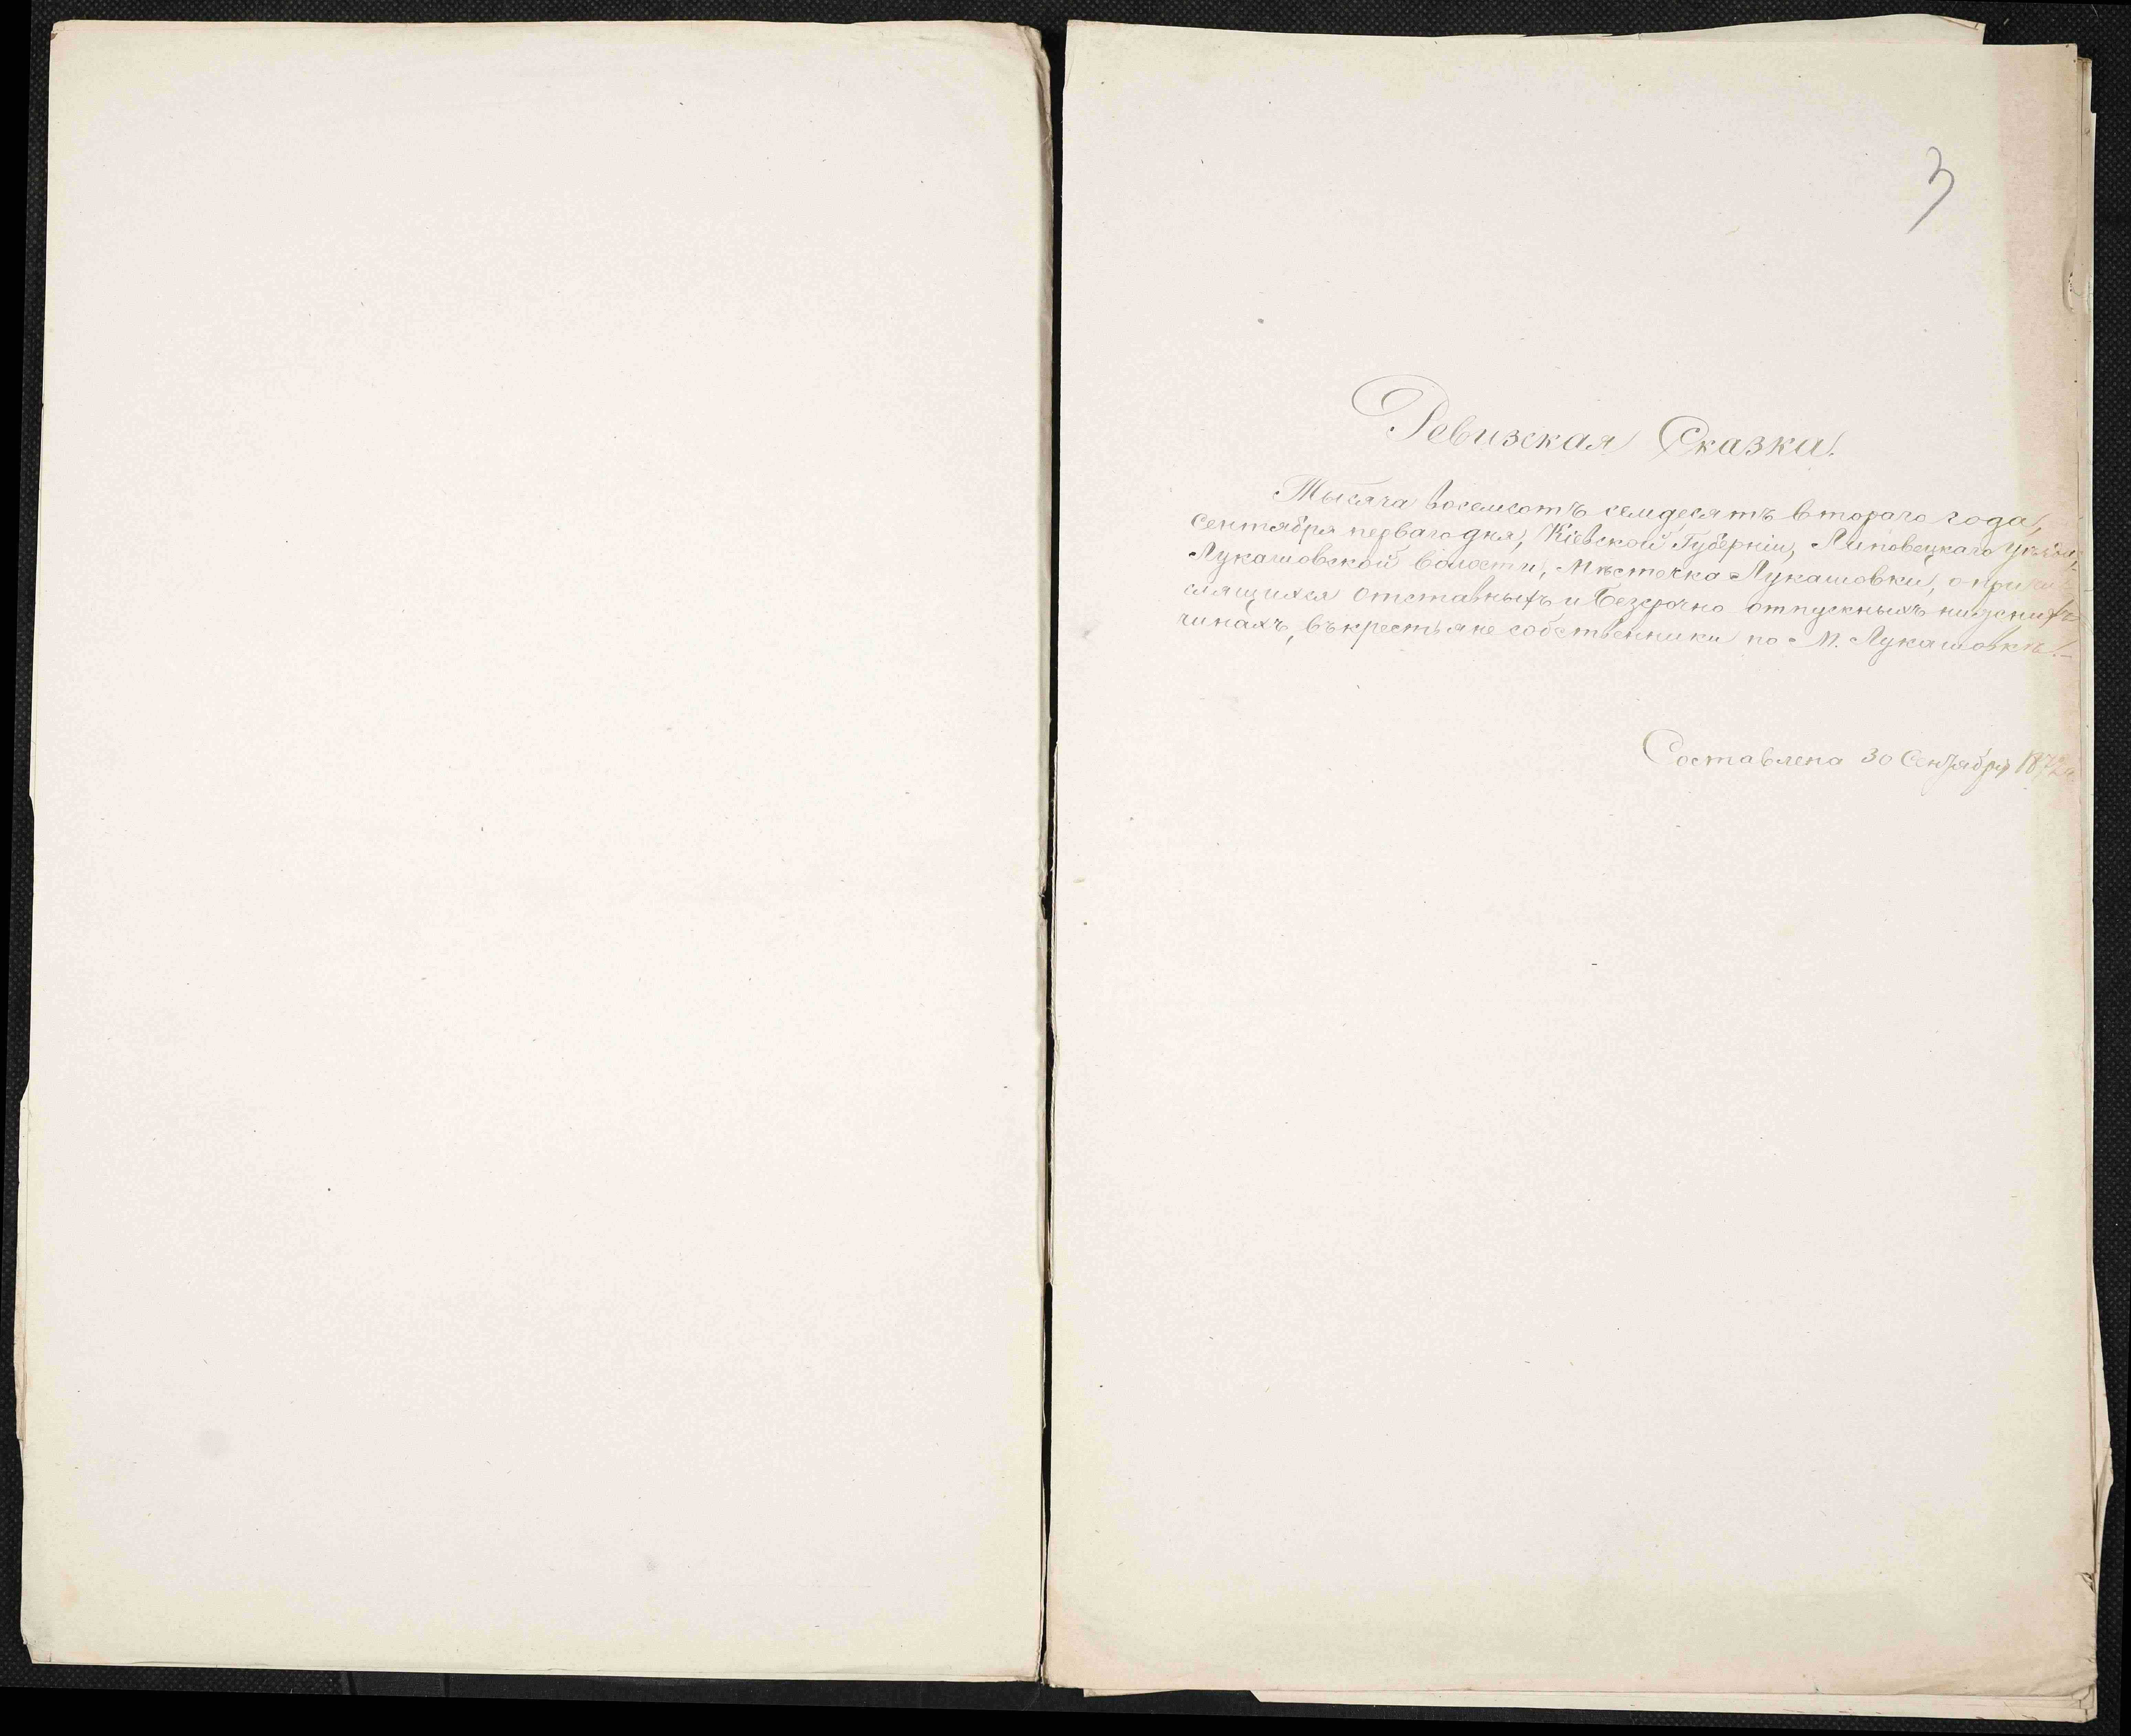 3
Ревизская Сказка.
Тысяча восемсотъ семдесятъ втораго года,
сентября перваго дня, Кіевской Губерніи, Липовецкаго уѣзда,
Лукашовской волости, Мѣстечка Лукашовки, о причи-
слящихся отставныхъ и безсрочно отпускныхъ нижнихъ
чинахъ, въ крестьяне собственники по М. Лукашовкѣ.-
Составлена 30 Сентября 1872